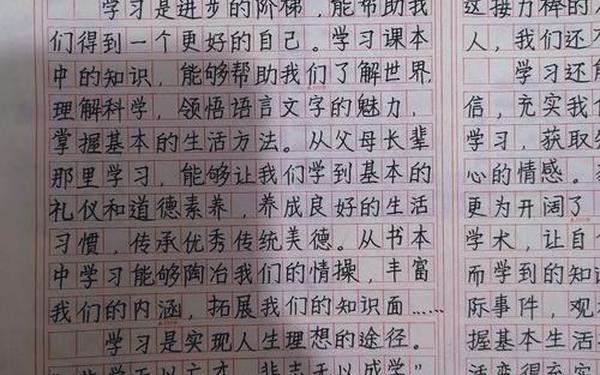 学习是进步的阶梯，能帮助我
们得到一个更好的自己。学习课本
中的知识，能够帮助我们了解世界
理解科学，领悟语言文字的魅力，
掌握基本的生活方法。从父母长辈
那里学习，能够让我们学到基本的
礼仪和道德素养，养成良好的生活
习惯，传承优秀传统美德。从书本
中学习能够陶冶我们的情操，丰富
我们的内涵，拓展我们的知识面……
学习是实现人生理想的途径。
学无以广才，非志无以成学”
这接力棒的
人，我们还
学习还能
信，充实我
学习，获取
心的情感。
更为开阔了
学术，让自
而学到的知
际事件，观
握基本生活
活变得很充